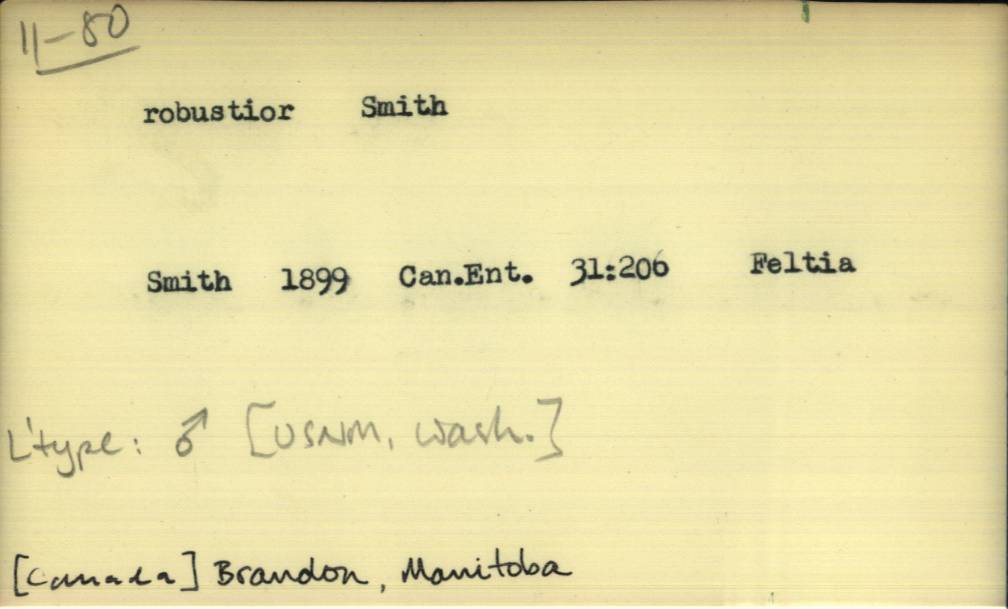 11-80
robustior Smith
Smith 1899 Can.Ent. 31:206 Feltia
L'type: ♂ [USNM, Wash.]
[Canada] Brandon, Manitoba